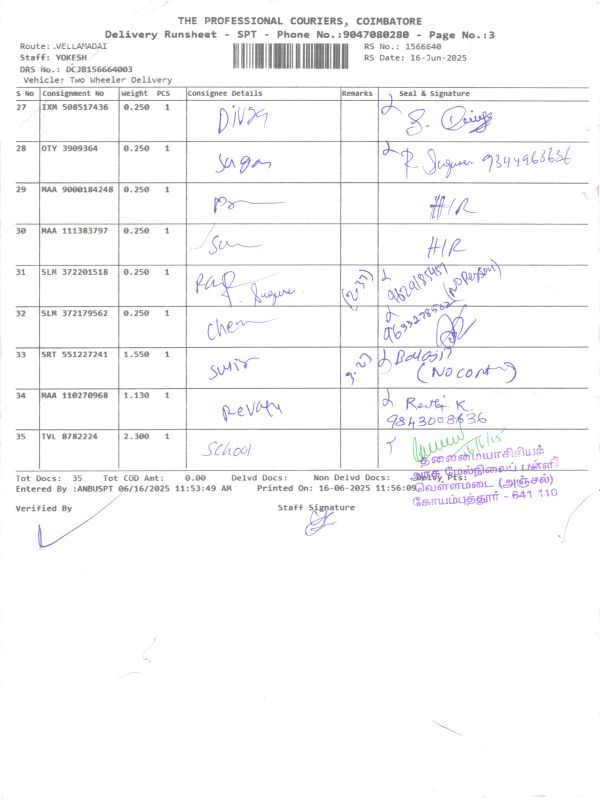 THE PROFESSIONAL COURIERS, COIMBATORE
Delivery Runsheet - SPT - Phone No.:9047080280 - Page No.:3
Route: .VELLAMADAI RS No.: 1566640
Staff: YOKESH RS Date: 16-Jun-2025
DRS No.: DCJB156664003
Vehicle: Two Wheeler Delivery
S No Consignment No Weight PCS Consignee Details Remarks Seal & Signature
27 IXM 508517436 0.250 1 Divya
28 OTY 3909364 0.250 1 Sagar 9344963636
29 MAA 9000184248 0.250 1 H/R
30 MAA 111383797 0.250 1 H/R
31 SLM 372201518 0.250 1 (2-37) (No Person)
32 SLM 372179562 0.250 1
33 SRT 551227241 1.550 1 Balaji
(No cont)
34 MAA 110270968 1.130 1 Revathi K.
9843008636
35 TVL 8782224 2.300 1 School
தலைமையாசிரியர்
அரசு மேல்நிலைப் பள்ளி
வெள்ளமடை (அஞ்சல்)
கோயம்புத்தூர் - 641 110
Tot Docs: 35 Tot COD Amt: 0.00 Delvd Docs: Non Delvd Docs: Delvy Pts:
Entered By :ANBUSPT 06/16/2025 11:53:49 AM Printed On: 16-06-2025 11:56:09
Verified By Staff Signature